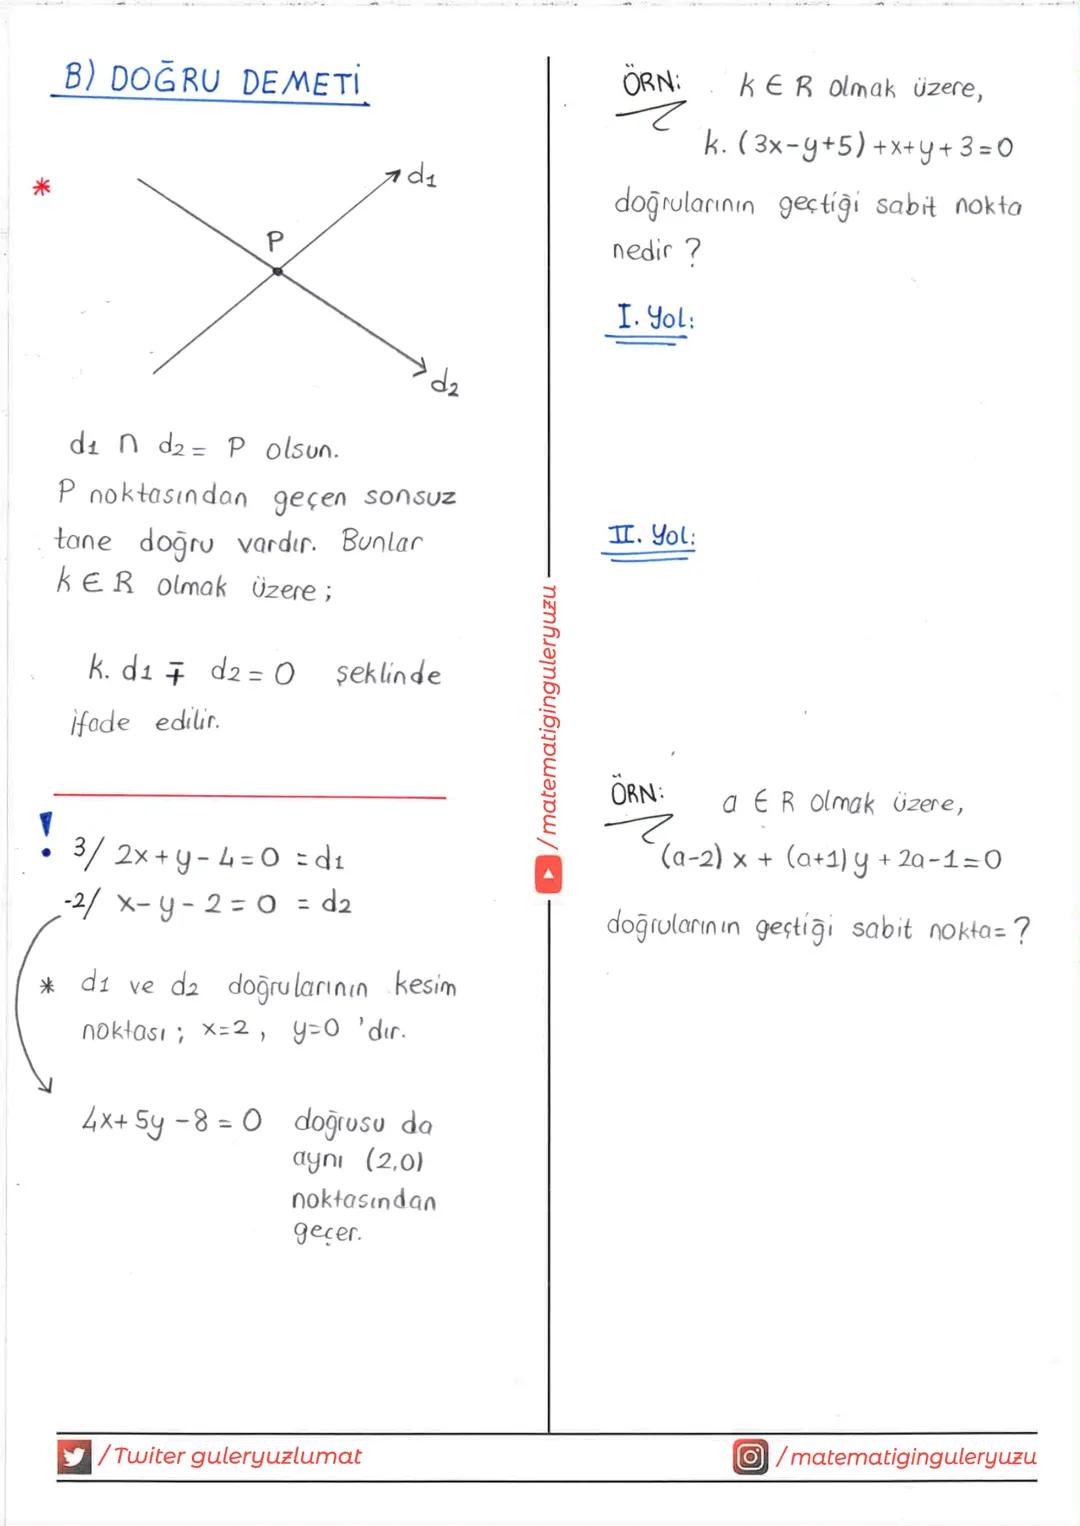 B) DOĞRU DEMETİ
*
d1
P
d2
d1 ∩ d2 = P olsun.
P noktasından geçen sonsuz
tane doğru vardır. Bunlar
k ∈ R olmak üzere;
k. d1 ∓ d2 = 0 şeklinde
ifade edilir.
!
3/ 2x+y-4=0 = d1
-2/ x-y-2=0 = d2
* d1 ve d2 doğrularının kesim
noktası; x=2, y=0 'dır.
4x+5y-8=0 doğrusu da
aynı (2,0)
noktasından
geçer.
/matematiginguleryuzu
ÖRN: k ∈ R olmak üzere,
k. (3x-y+5)+x+y+3=0
doğrularının geçtiği sabit nokta
nedir ?
I. Yol:
II. Yol:
ÖRN: a ∈ R olmak üzere,
(a-2) x + (a+1) y + 2a-1=0
doğrularının geçtiği sabit nokta= ?
/Twiter guleryuzlumat
/matematiginguleryuzu